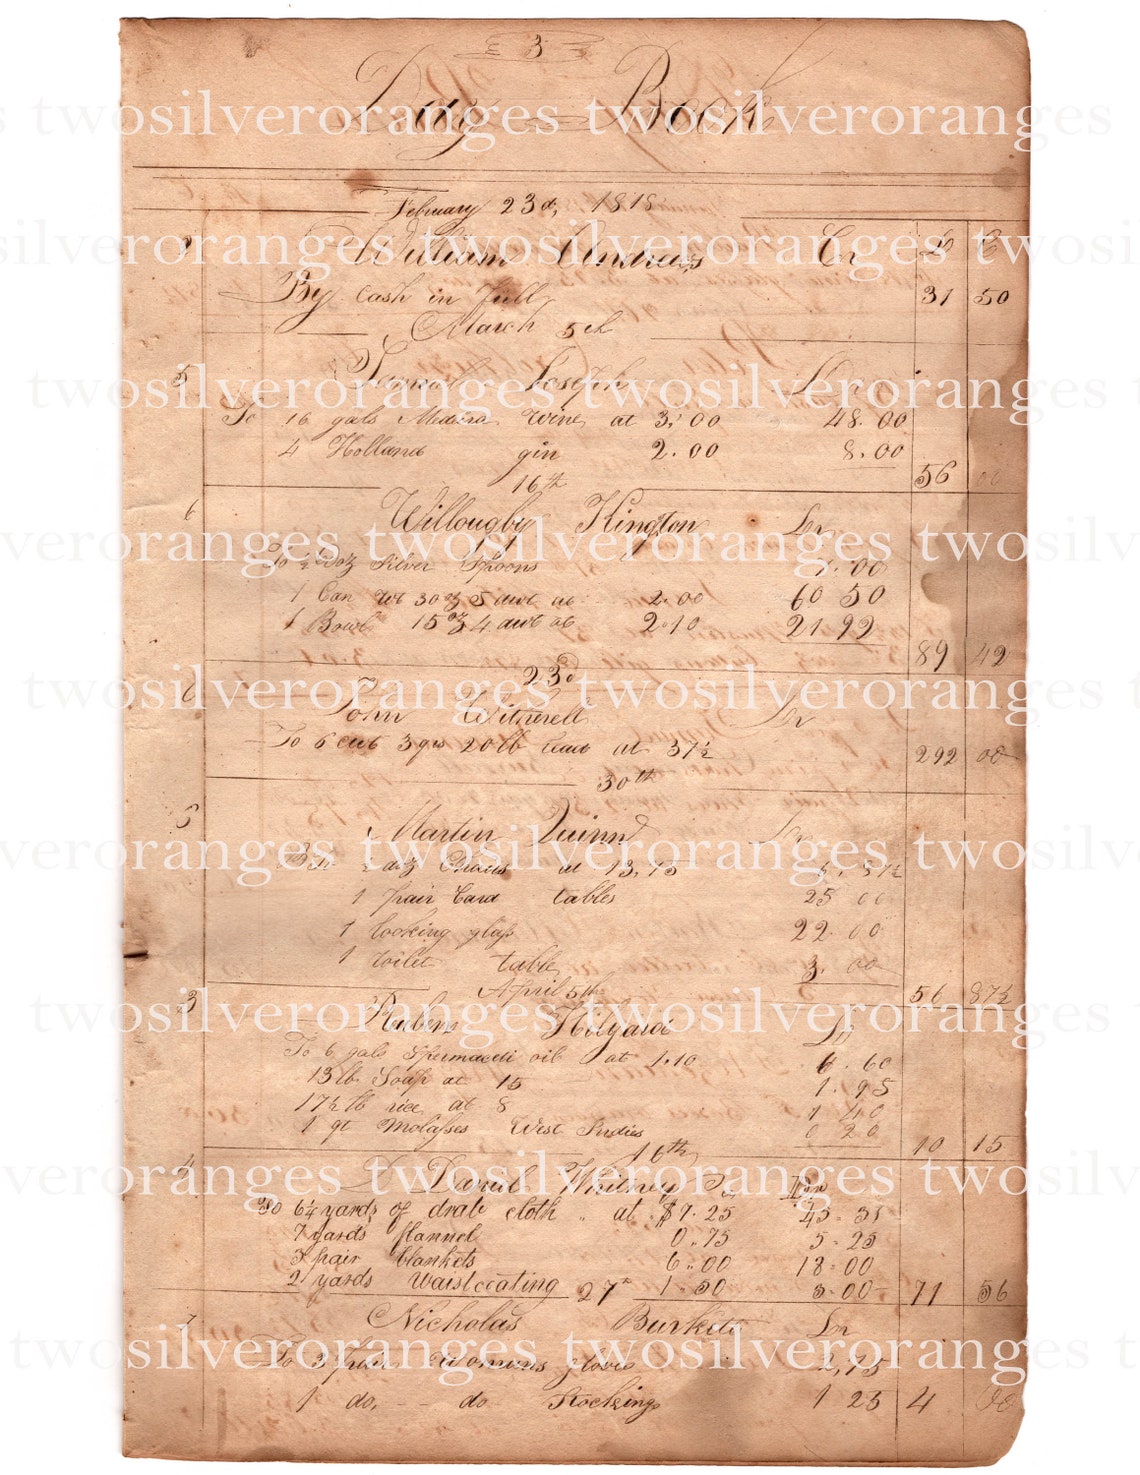 3
Day Book
twosilveroranges twosilveroranges
February 23d, 1818
William Andrews Cr D C
twosilveroranges twosilveroranges
By Cash in Full 31 50
March 5th
5 Samuel Joseph Dr
twosilveroranges twosilveroranges
To 16 gals Wine, at 3,00 48.00
4 Holland gin 2.00 8.00
56 00
16th
6 Willougby Kington Dr
twosilveroranges twosilveroranges
To ½ Doz Silver Spoons 7.00
1 Can Wt 30 oz 5 dwt at 2.00 60 50
1 Bowl 15 oz 4 dwt at 2.10 21 92
89 42
23d
6 John Witherell Dr
twosilveroranges twosilveroranges
To 6 cwt 3 qrs 20 lb at 37½ 292 00
30th
Martin Quinn Dr
twosilveroranges twosilveroranges
To ½ doz Chairs at 13,75 6.87½
1 pair Card tables 25 00
1 looking glass 22.00
1 toilet table 3.00
56 87½
April 5th
3 Reuben Hilyard Dr
twosilveroranges twosilveroranges
To 6 gals Spermaceti oil at 1.10 6.60
13 lb Soap at 15 1.95
17½ lb rice at 8 1 40
1 qt Molasses West Indies 0 20
10 15
16th
4 Daniel Whitney Dr
twosilveroranges twosilveroranges
To 6¼ yards of drab cloth " at $7.25 45.31
7 yards flannel 0.75 5.25
3 pair blankets 6.00 18.00
2 yards Waistcoating 1.50 3.00 71 56
27th
7 Nicholas Dr
twosilveroranges twosilveroranges
To 3 pair Womens gloves 2,75
1 do, -- do Stockings 1 25 4 00